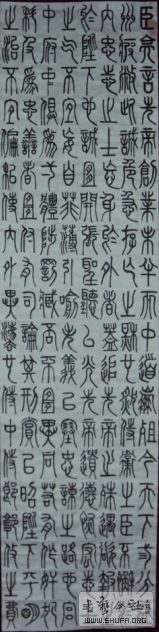 臣亮言先帝創業未半而中道崩殂今天下三分益
州疲敝此誠危急存亡之秋也然侍衛之臣不懈
於內忠志之士忘身於外者蓋追先帝之殊遇欲報之
於陛下也誠宜開張聖聽以光先帝遺德恢弘志
士之氣不宜妄自菲薄引喻失義以塞忠諫之路也宮
中府中俱為一體陟罰臧否不宜異同若有作姦犯
科及為忠善者宜付有司論其刑賞以昭陛下平明
之治不宜偏私使內外異法也侍中侍郎郭攸之費
WWW.SHUFA.ORG